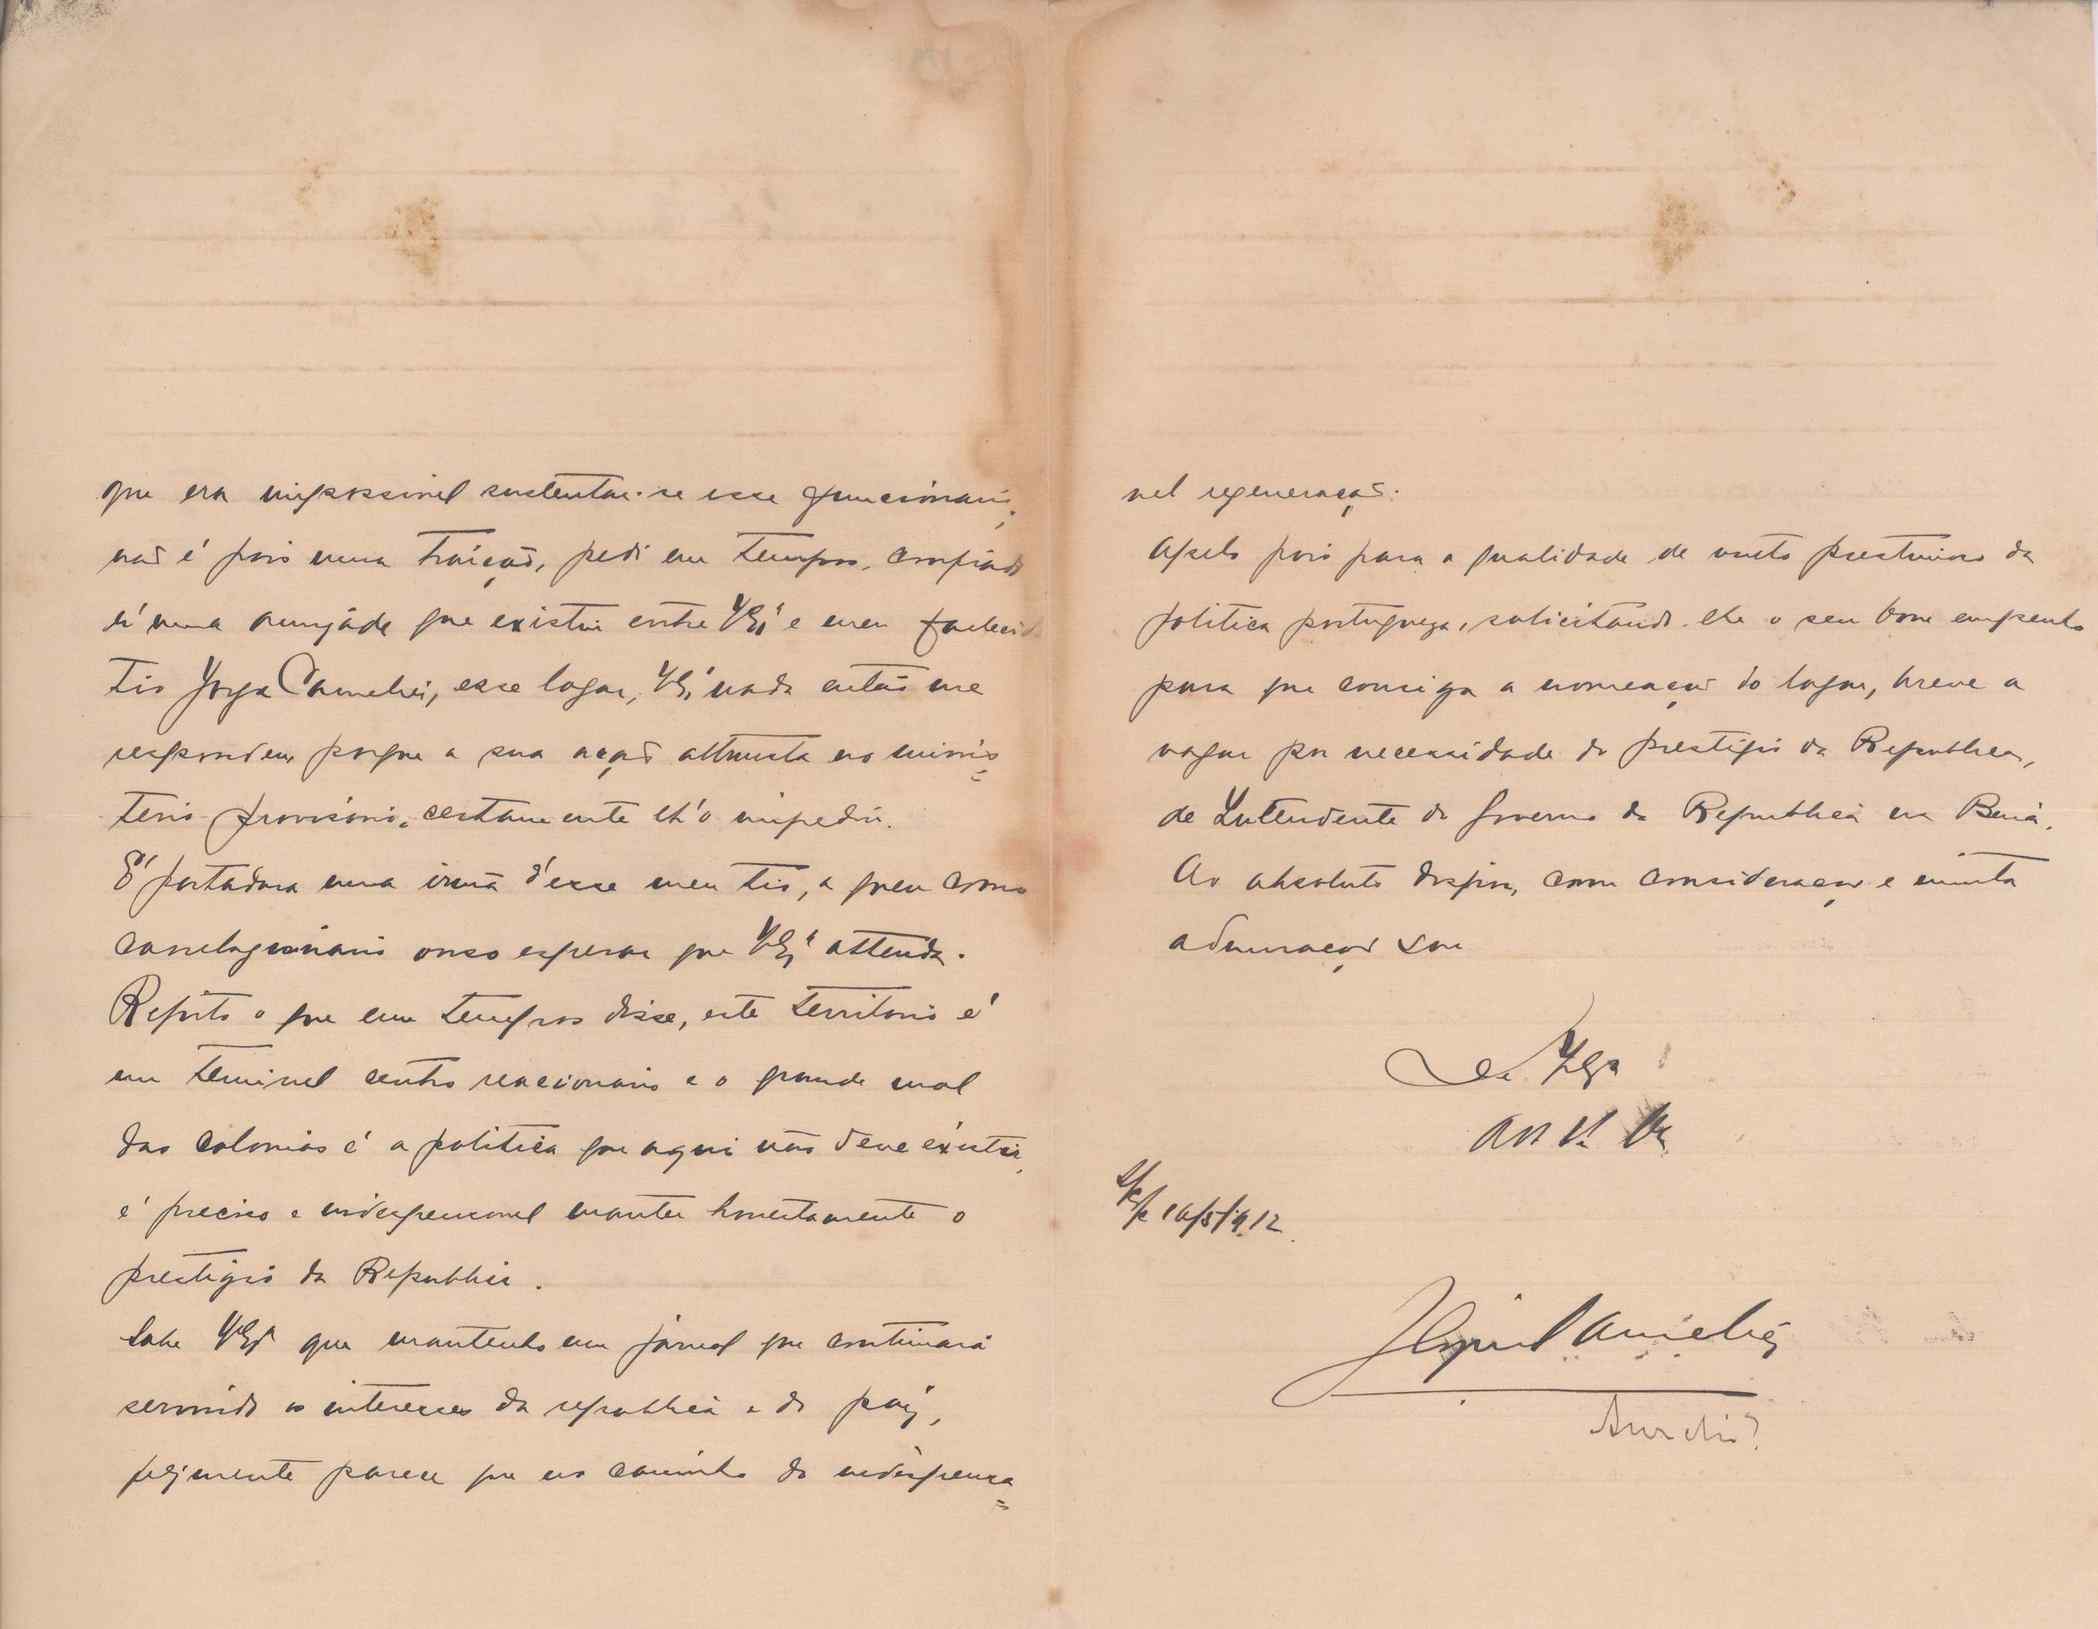 que era impossivel sustentar-se esse funcionario,
não é pois uma traição, pedi em tempos, confiado
n'uma amizade que existiu entre VEx.ª e meu fallecido
tio Jorge Camelier, esse logar, VEx.ª nada então me
respondeu porque a sua acção altruista no minis=
terio provisório, certamente lh'o impediu.
É portadora uma irmã d'esse meu tio, a quem como
correlegionario ouso esperar que VEx.ª attenda.
Repito o que em tempos disse, este territorio é
um terrivel centro reacionario e o grande mal
das colonias é a politica que aqui não deve existir,
é preciso e indespensavel manter honestamente o
prestigio da Republica.
Sabe VEx.ª que mantenho um jornal que continuará
servindo os interesses da republica e do paiz,
felizmente parece que no caminho da indispensa=
vel regeneração.
Apelo pois para a qualidade de vulto prestimoso da
politica portugueza, solicitando-lhe o seu bom empenho
para que consiga a nomeação do logar, breve a
vagar por necessidade do prestigio da Republica,
de Intendente do Governo da Republica na Beira.
Ao absoluto dispor, com consideração e muita
admiração sou
De VExa
16/5/912
Aurelio?